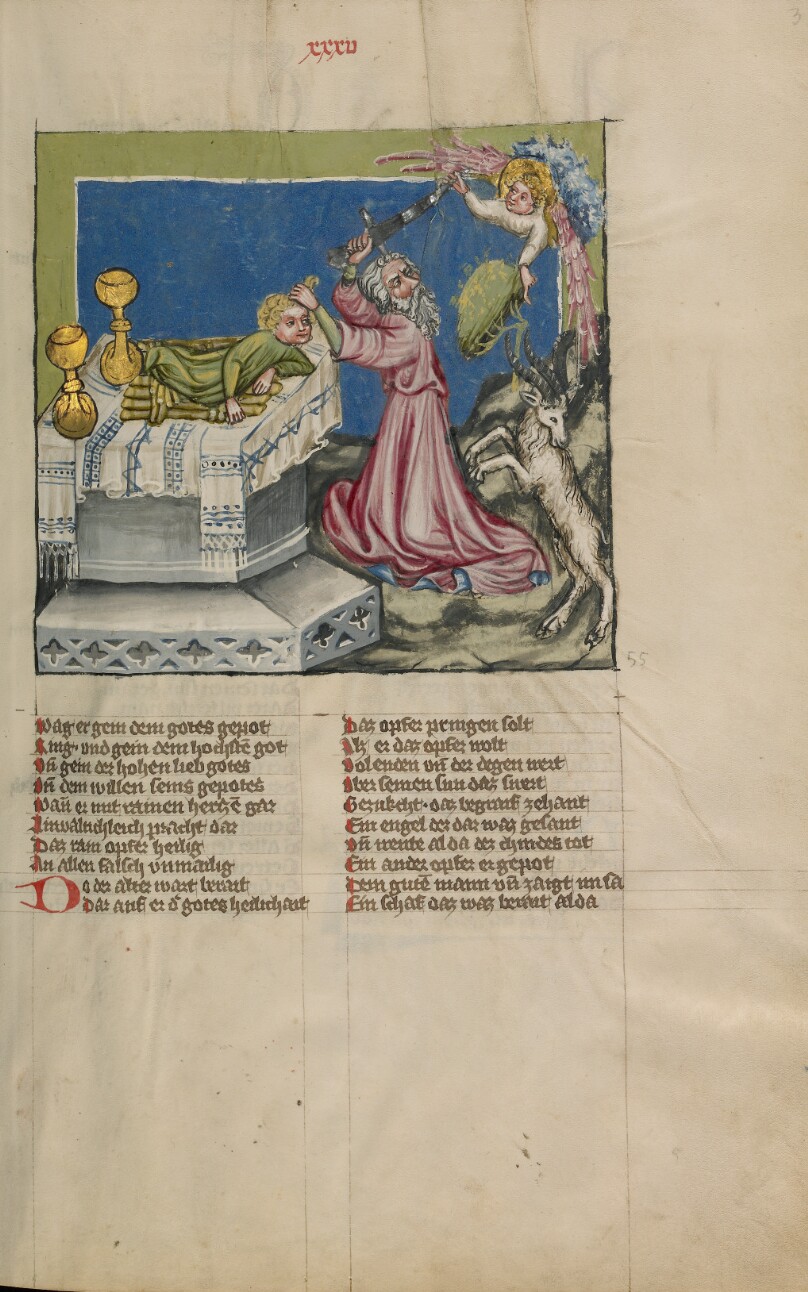 xxxv
3
55
Wag er gein dem gotes gepot
Ring· und gein dem hochstē got
Vñ gein der hohen lieb gotes
In dem willen seins gepotes
Wañ er mit rainen hertzē gar
pracht dar
Daz rain opfer heilig
An allen falsch vnmailig
Do der alter wart berait
Dar auf er d̄ gotes heilichait
Daz opfer pringen solt
Alz er daz opfer wolt
Volenden vñ der degen wert
Vber seinen sun daz swert
Gezukcht· daz begraif zehant
Ein engel der dar waz gesant
Vñ wente al da der chindes tot
Ein ander opfer er gepot
Dem gutē mann vñ zaigt im sa
Ein schaf daz waz berait alda